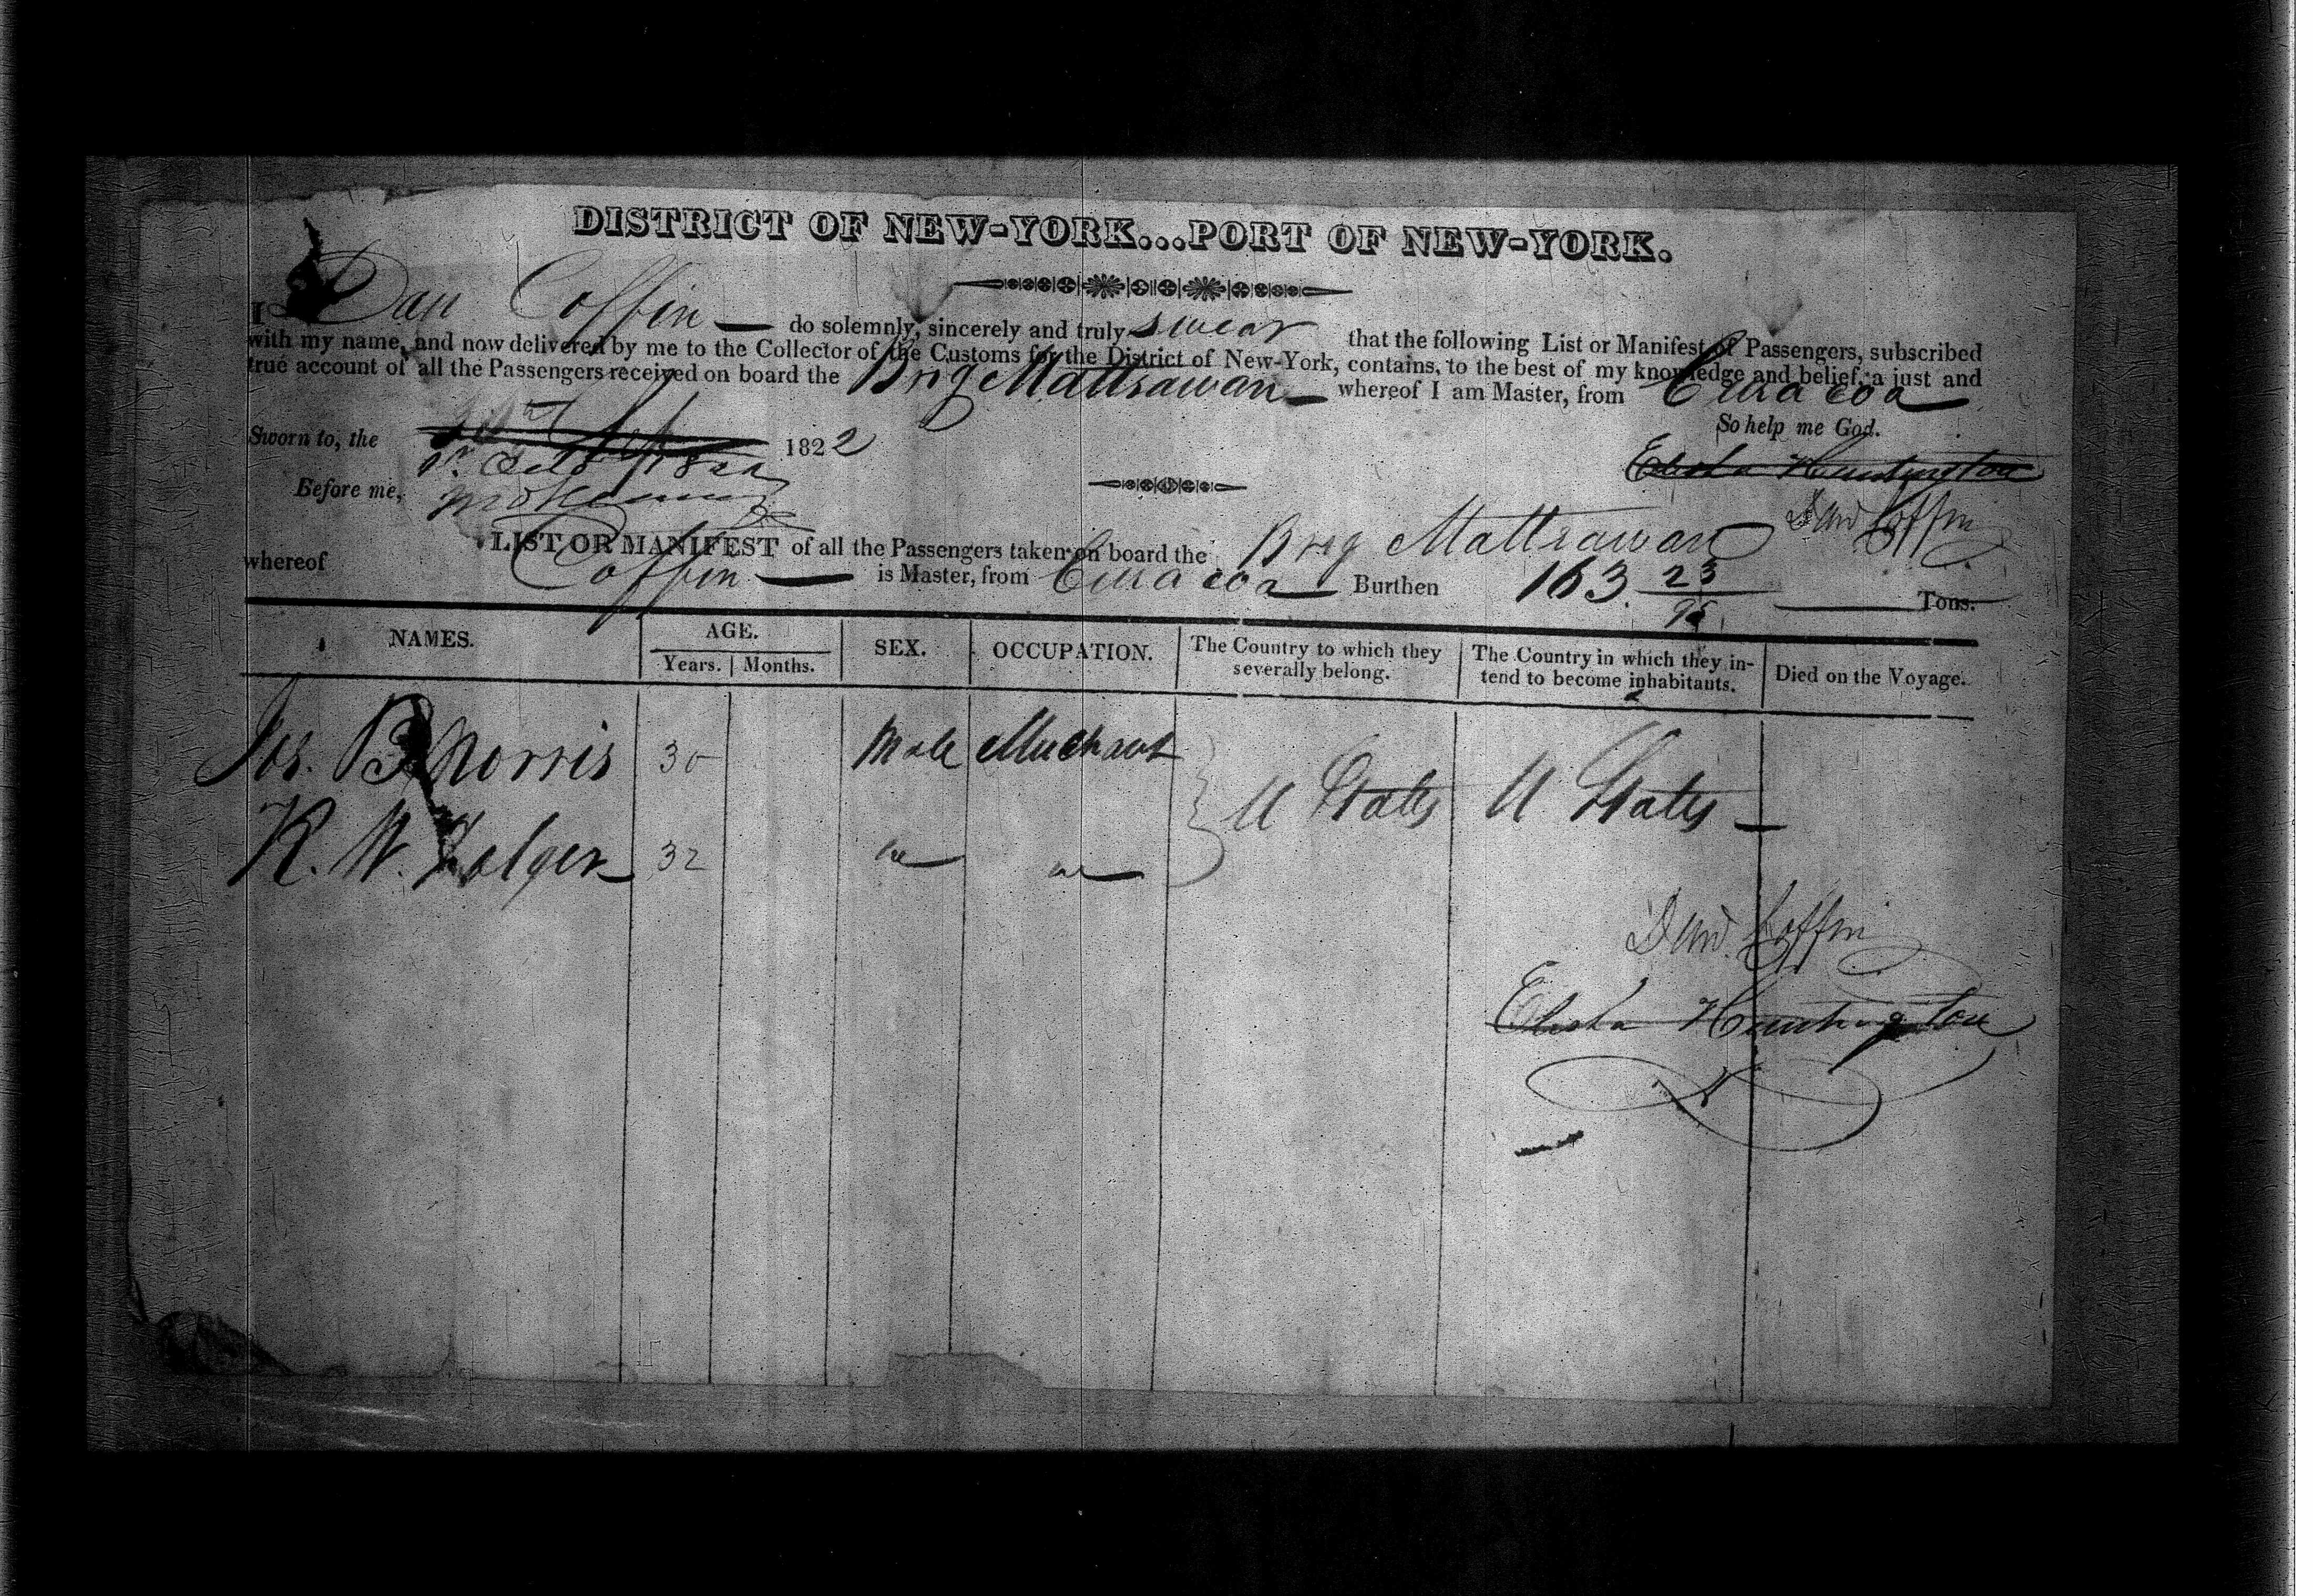 DISTRICT OF NEW-YORK...PORT OF NEW-YORK.
I Dan Coffin — do solemnly, sincerely and truly swear that the following List or Manifest of Passengers, subscribed
with my name, and now delivered by me to the Collector of the Customs for the District of New-York, contains, to the best of my knowledge and belief, a just and
true account of all the Passengers received on board the Brig Mattrawan — whereof I am Master, from Curacoa
So help me God.
Sworn to, the 1822
Elisha Huntington
Before me,
Dan Coffin
LIST OR MANIFEST of all the Passengers taken on board the Brig Mattrawan
whereof Coffin — is Master, from Curacoa Burthen 163. 23/95 Tons.
NAMES. AGE. SEX. OCCUPATION. The Country to which they severally belong. The Country in which they intend to become inhabitants. Died on the Voyage.
Years. Months.
Jos. B Morris 30 Male Merchant
U States U States —
K. W. Folger 32
Dan Coffin
Elisha Huntington